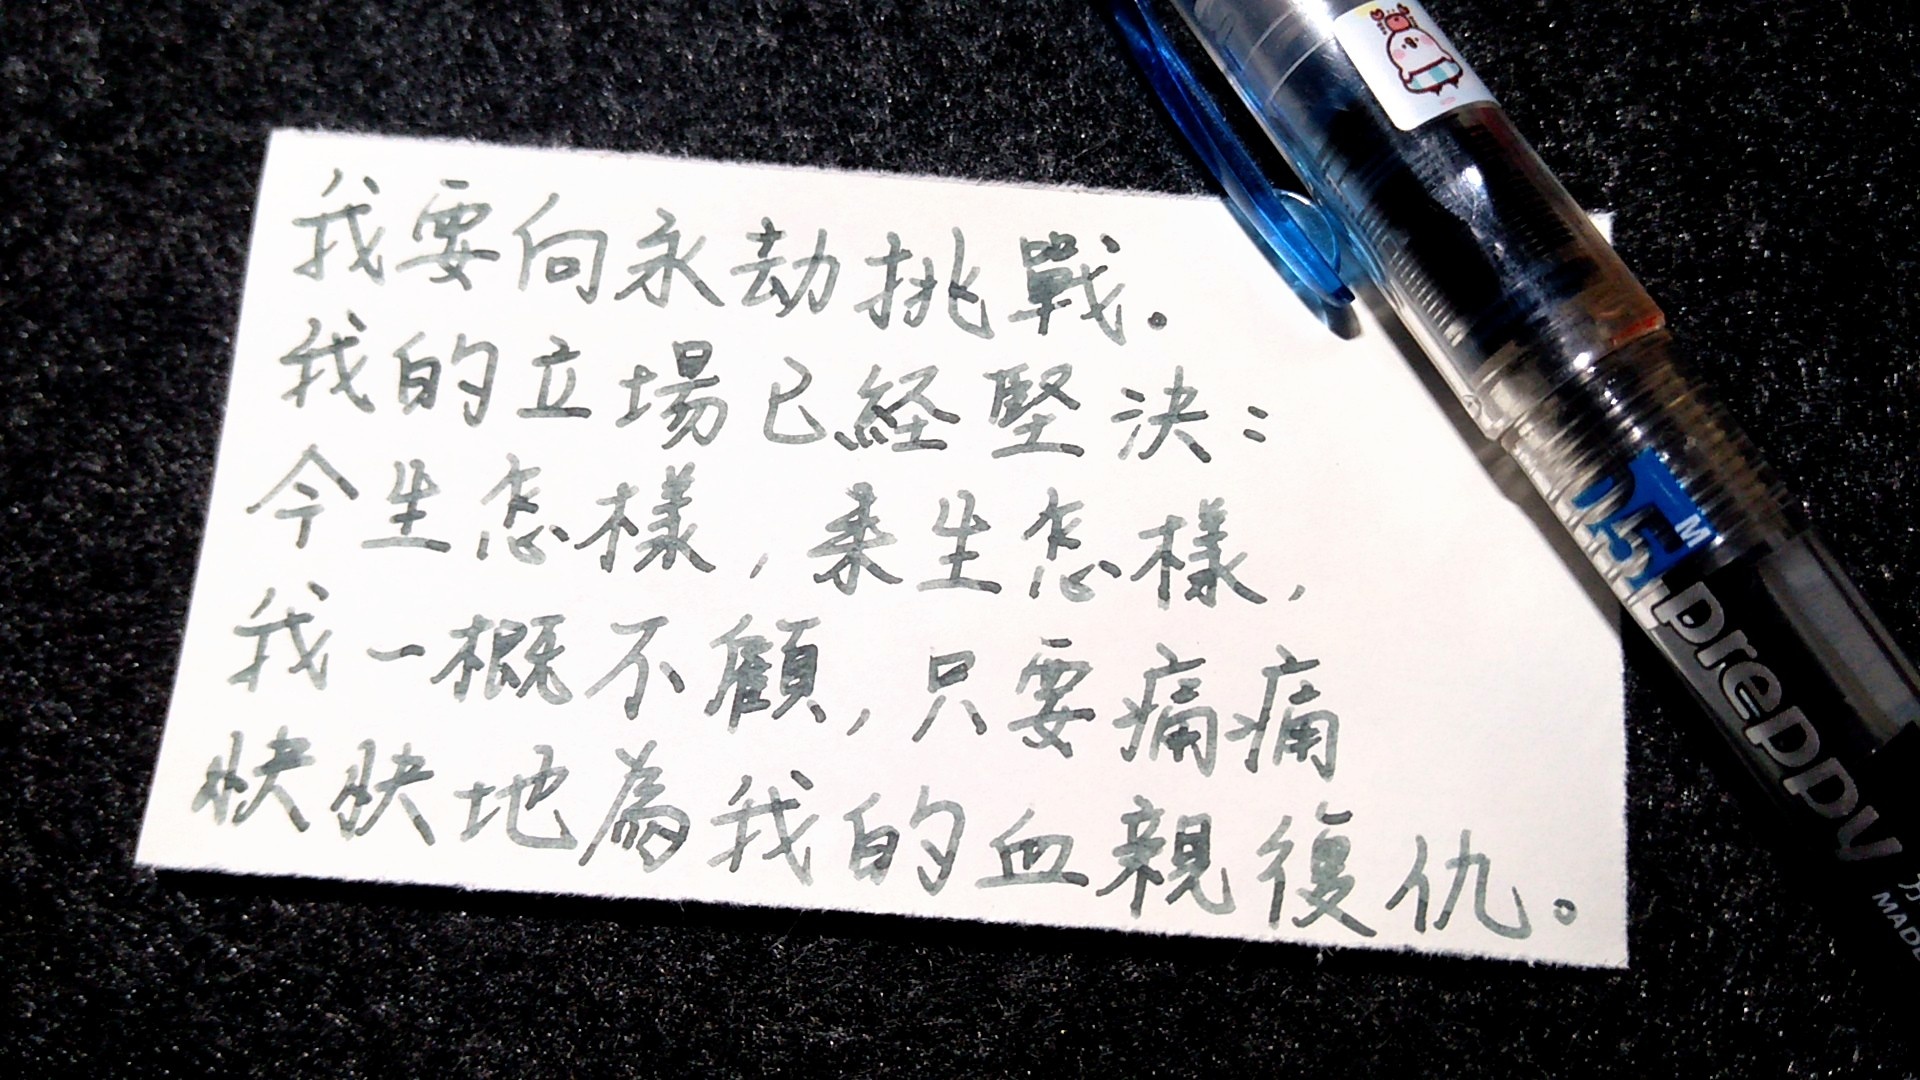 我要向永劫挑戰.
我的立場已経堅決：
今生怎樣，来生怎樣，
我一概不顧，只要痛痛
快快地為我的血親復仇。
05 M
preppy
MADE